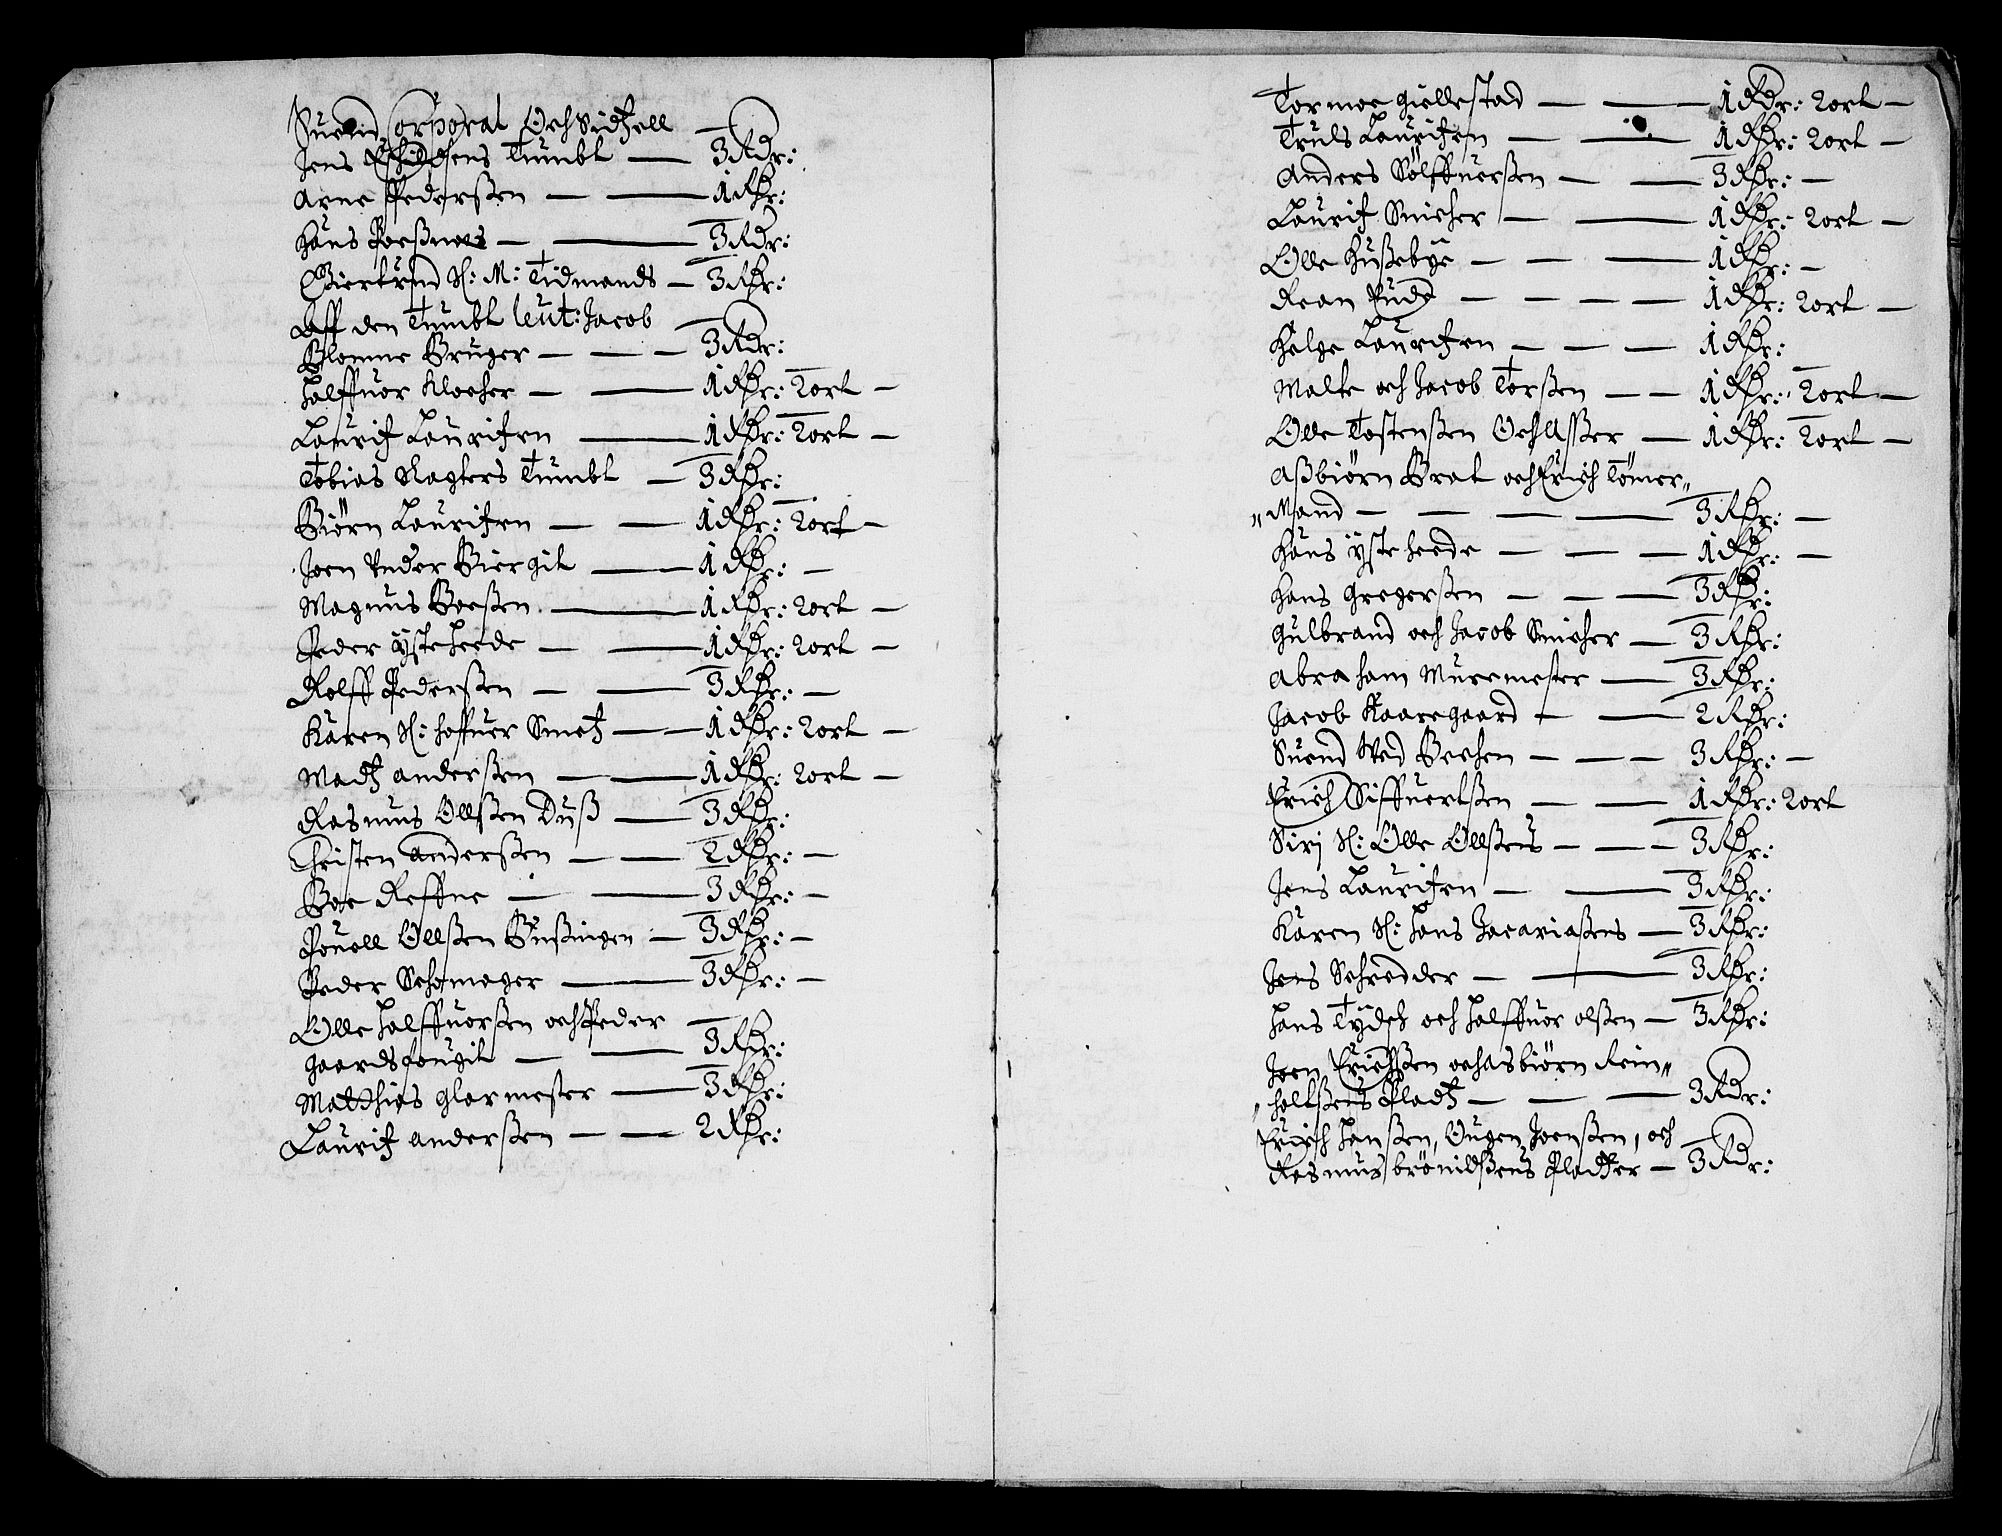 Suend Corporal Och Sidsell
Jens Erichsens Tumbt — 3 Rdr:
Arne Pedersßen — — 1 Rdr:
Hans Poeßmoes — — 3 Rdr:
Giertrud S: M: Tidmands — 3 Rdr:
Aff den Tumbt leut: Jacob
Blomme Bruger — — — 3 Rdr:
Halffuor Klocher — — 1 Rdr: 2 ort —
Lauritz Lauritzen — 1 Rdr: 2 ort —
Tobias Slagters Tumbt — 3 Rdr:
Biörn Lauritzen — — 1 Rdr: 2 ort —
Joen Under Biergit — 1 Rdr: —
Magnus Boeßen — 1 Rdr: 2 ort —
Peder ÿsteheede — — 1 Rdr: 2 ort —
Rolff Pederßen — — 3 Rdr: —
Karen S: hoffuer Smetz — — 1 Rdr: 2 ort —
Madtz anderßen — — 1 Rdr: 2 ort —
Rasmus Ollßen Duß — 3 Rdr:
Christen Anderßen — — 2 Rdr: —
Boe Reffne — — 3 Rdr: —
Pouell Ollßen Bußingen — 3 Rdr: —
Peder Schomager — 3 Rdr: —
Olle halffuorßen och Peder
Gaardsfougit — — 3 Rdr:
Matthias glarmester — 3 Rdr:
Lauritz anderßen — — 2 Rdr:
Tormoe giellestad — — 1 Rdr: 2 ort —
Truls Lauritzen — — 1 Rdr: 2 ort —
Anders Sölffuerßen — — 3 Rdr: —
Lauritz Snicher — — 1 Rdr: 2 ort —
Olle Hußebÿe — — — 1 Rdr: —
Roan Rud — — — — 1 Rdr: 2 ort —
Helge Lauritzen — — — 1 Rdr: —
Malte och Jacob Torßen — — 1 Rdr: 2 ort —
Olle Tostenßen Och Aßser — 1 Rdr: 2 ort —
Aßbiörn Brat och Erich Tömer„
„Mand — — — — 3 Rdr: —
Hans ÿsteheede — — — 1 Rdr: —
Hans Gregerßen — — — 3 Rdr:
Gulbrand och Jacob Snicher — 3 Rdr:
Abraham Muremester — 3 Rdr:
Jacob Kaaregaard — — 2 Rdr:
Suend Wed Bechen — — — 3 Rdr: —
Erich Siffuertßen — — 1 Rdr: 2 ort
Siri S: Olle Ollßens — — — 3 Rdr:
Jens Lauritzen — — 3 Rdr:
Karen S: Hans Jacariaßens — 3 Rdr:
Jens Schredder — — 3 Rdr:
Hans Tÿdsk och halffuor olßen — 3 Rdr:
Joen Erichßen och Asbiörn Rein„
„holtßens Pladtz — — — 3 Rdr:
Erich Hanßen, Augen Joenßen, och
Rasmus brönildßens Pladtzer — 3 Rdr: